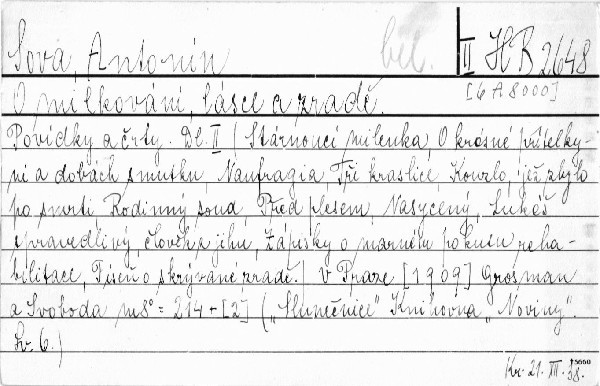 Sova, Antonín
bel.
II HB 2648
[6 A 8000]
O milkování, lásce a zradě.
Povídky a črty. Dl. II (Stárnoucí milenka, O krásné přítelky-
ni a dobách smutku, Naufragia Tři kraslice Kouzlo, jež zbylo
po smrti Rodinný soud, Před plesem, Nasycený, Lukáš
spravedlivý, člověk z jihu, Zápisky o marném pokusu reha-
bilitace, Píseň o skrývané zradě.) V Praze [1909] Grosman
a Svoboda m8° = 214 + [2] ("Slunečnice" Knihovna "Noviny".
Sv. 6.)
Kr. 21. XII. 38.